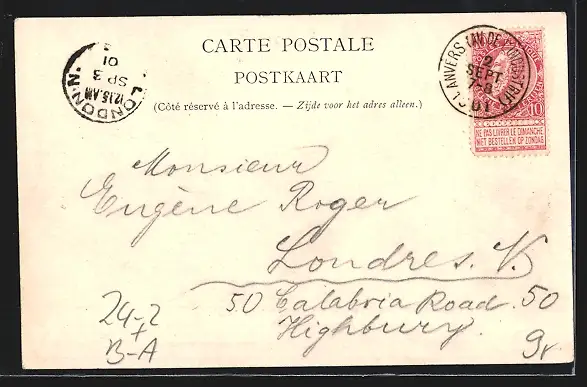 CARTE POSTALE
POSTKAART
(Côté réservé à l'adresse. — Zijde voor het adres alleen.)
LONDON·N·
12.15.AM
SP 3
01
ANVERS
2
SEPT
7-8
01
10
NE PAS LIVRER LE DIMANCHE
NIET BESTELLEN OP ZONDAG
Monsieur
Eugène Roger
Londres. N.
50 Calabria Road. 50
Highbury.
24-2
+
B-A